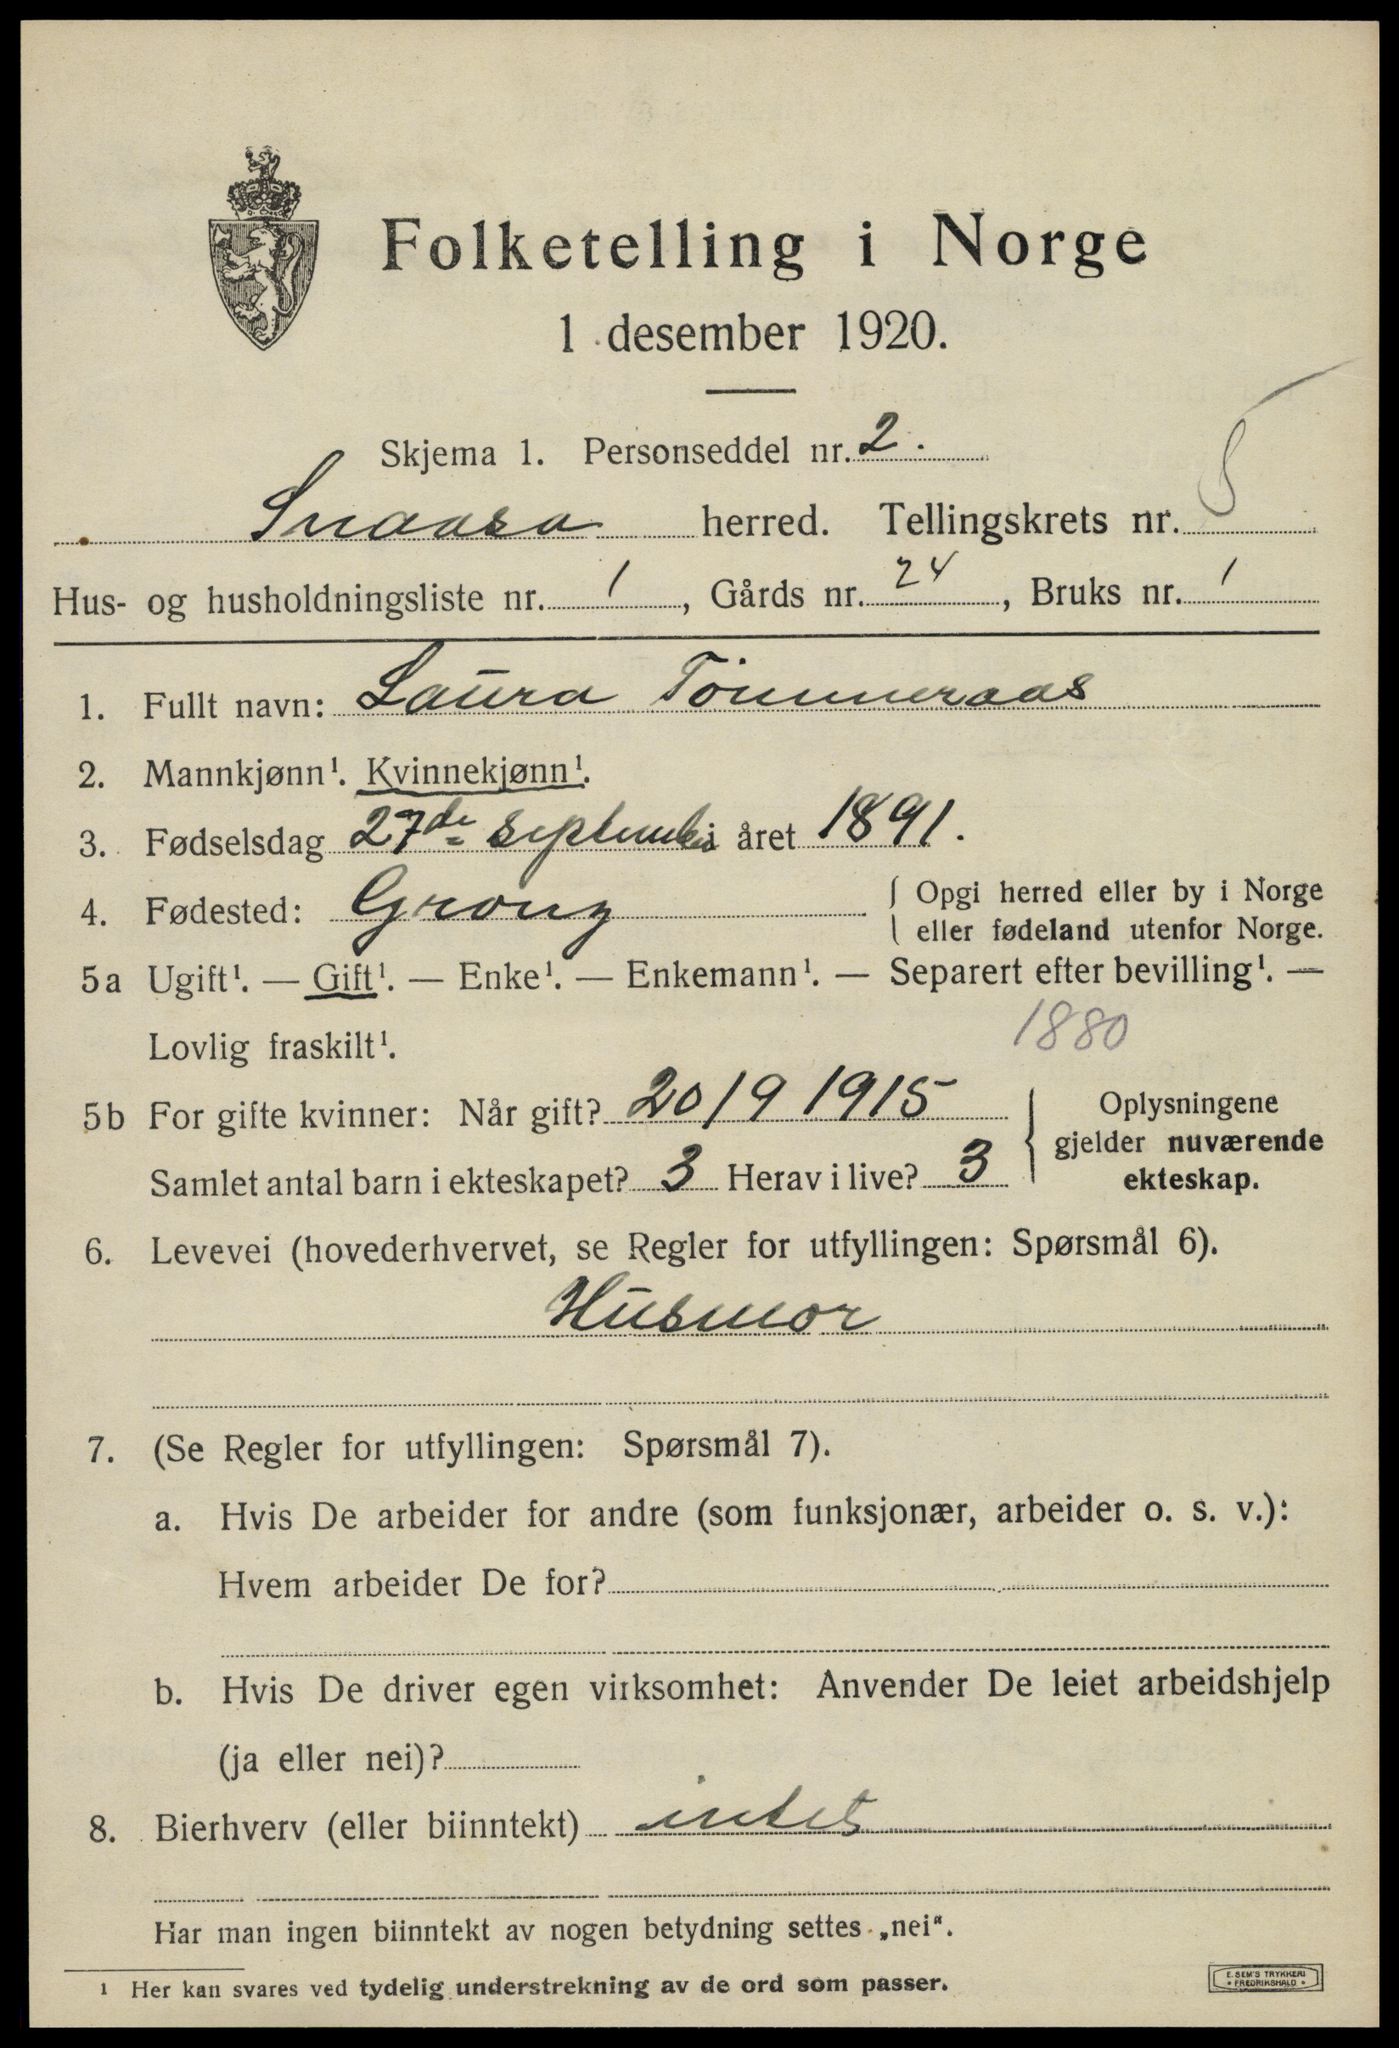 Folketelling i Norge
1 desember 1920.
Skjema 1. Personseddel nr. 2.
Snaasa herred. Tellingskrets nr. 5
Hus- og husholdningsliste nr. 1, Gårds nr. 24, Bruks nr. 1
1. Fullt navn: Laura Tömmeraas
2. Mannkjønn¹. Kvinnekjønn¹.
3. Fødselsdag 27de september i året 1891.
4. Fødested: Grong { Opgi herred eller by i Norge
eller fødeland utenfor Norge.
5a Ugift¹. — Gift¹. — Enke¹. — Enkemann¹. — Separert efter bevilling¹. —
Lovlig fraskilt¹. 1880
5b For gifte kvinner: Når gift? 20/9 1915 { Oplysningene
gjelder nuværende
Samlet antal barn i ekteskapet? 3 Herav i live? 3 ekteskap.
6. Levevei (hovederhvervet, se Regler for utfyllingen: Spørsmål 6).
Husmor
7. (Se Regler for utfyllingen: Spørsmål 7).
a. Hvis De arbeider for andre (som funksjonær, arbeider o. s. v.):
Hvem arbeider De for?
b. Hvis De driver egen virksomhet: Anvender De leiet arbeidshjelp
(ja eller nei)?
8. Bierhverv (eller biinntekt) intet
Har man ingen biinntekt av nogen betydning settes „nei".
¹ Her kan svares ved tydelig understrekning av de ord som passer.
E. SEM'S TRYKKERI
FREDRIKSHALD